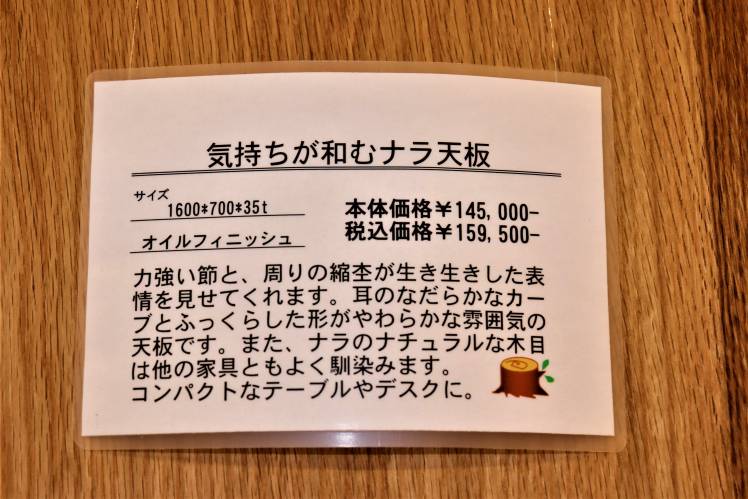 気持ちが和むナラ天板
サイズ
1600*700*35t
オイルフィニッシュ
本体価格￥145,000-
税込価格￥159,500-
力強い節と、周りの縮杢が生き生きした表
情を見せてくれます。耳のなだらかなカー
ブとふっくらした形がやわらかな雰囲気の
天板です。また、ナラのナチュラルな木目
は他の家具ともよく馴染みます。
コンパクトなテーブルやデスクに。